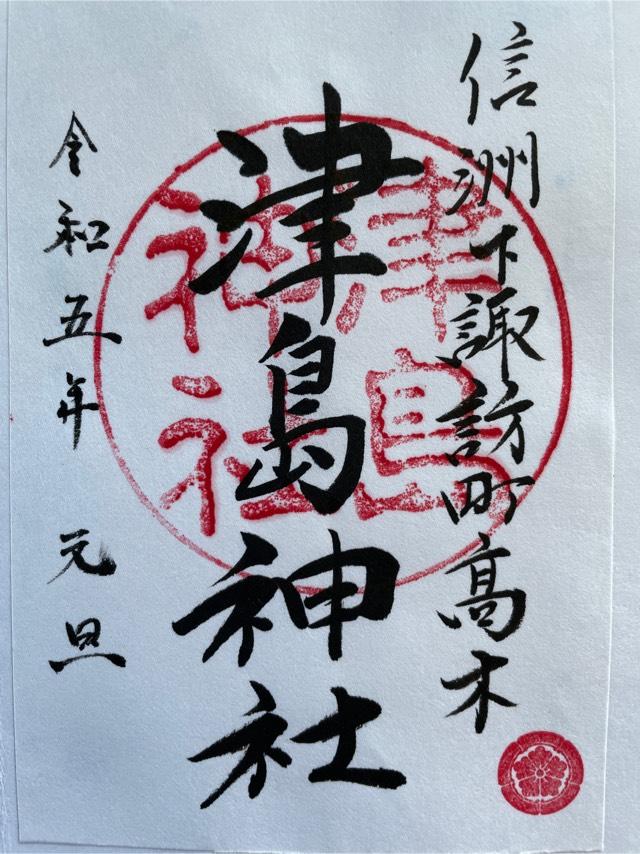 信洲下諏訪町高木
津島神社
津島神社
令和五年 元旦